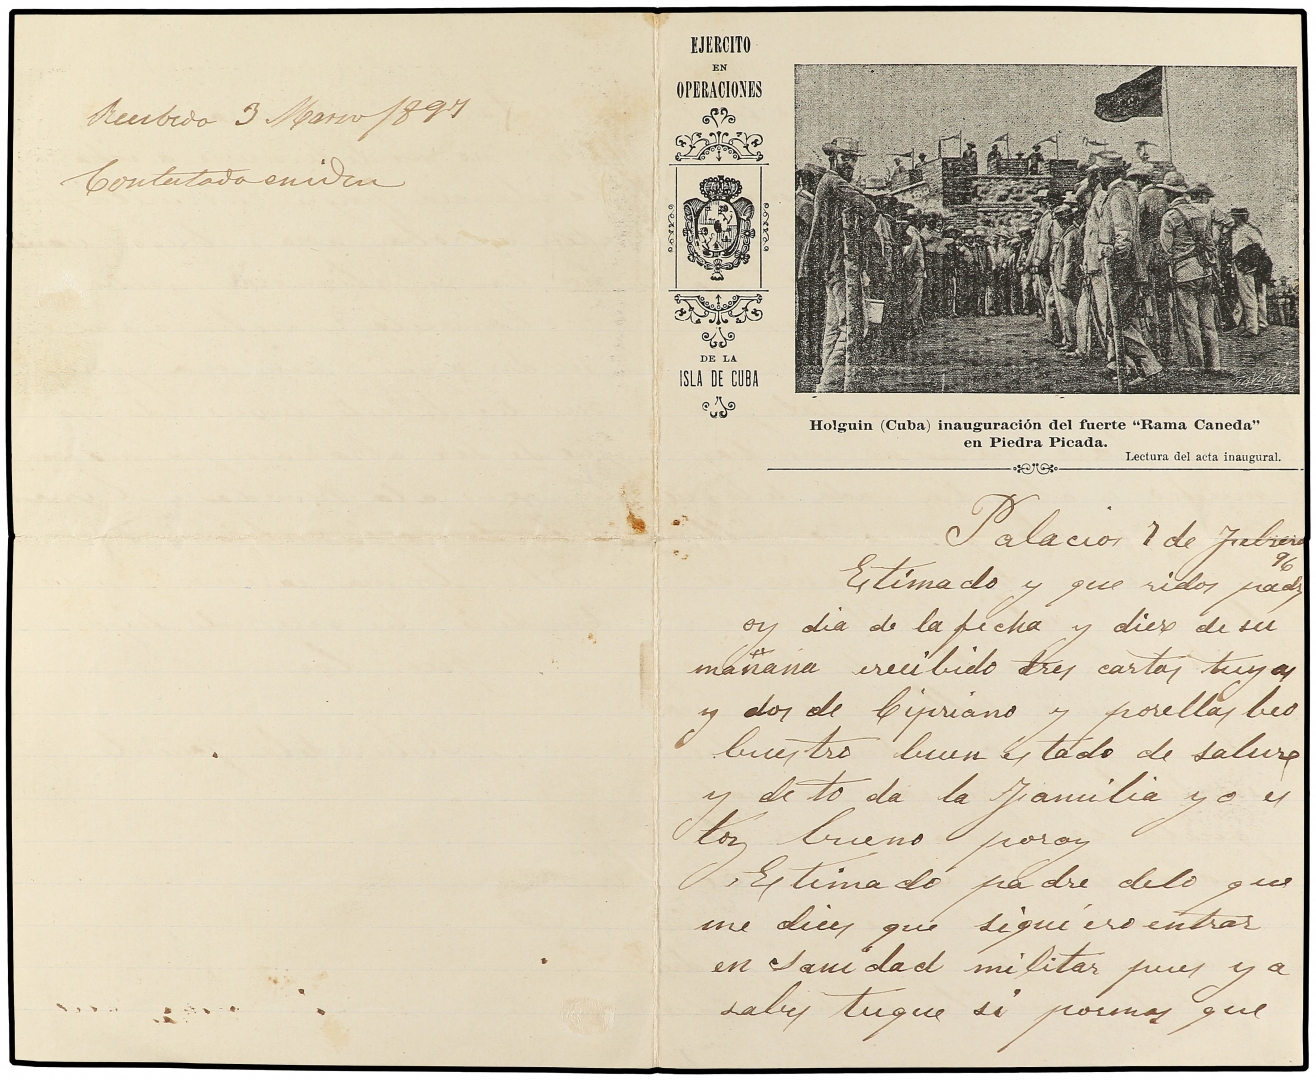 Recibida 3 Marzo 1897
Contestada en iden
EJERCITO
EN
OPERACIONES
DE LA
ISLA DE CUBA
Holguin (Cuba) inauguración del fuerte “Rama Caneda”
en Piedra Picada.
Lectura del acta inaugural.
Palacios 7 de Febrero
96
Estimado y que ridos padr
oy dia de la fecha y diex de su
mañana erecibido tres cartas tuyas
y dos de Cipriano y porellas beo
buestro buen es tado de salure
y de to da la familia yo es
toy bueno poroy
Estimado padre delo que
me dices que siquiero entrar
en sanidad militar pues ya
sabes tuque si pormas que